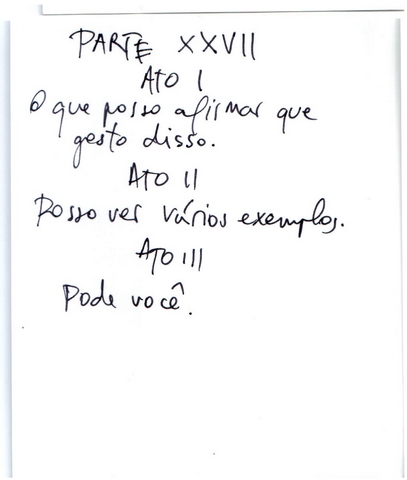 PARTE XXVII
ATO I
O que posso afirmar que
gesto disso.
ATO II
Posso ver vários exemplos.
ATO III
Pode você.